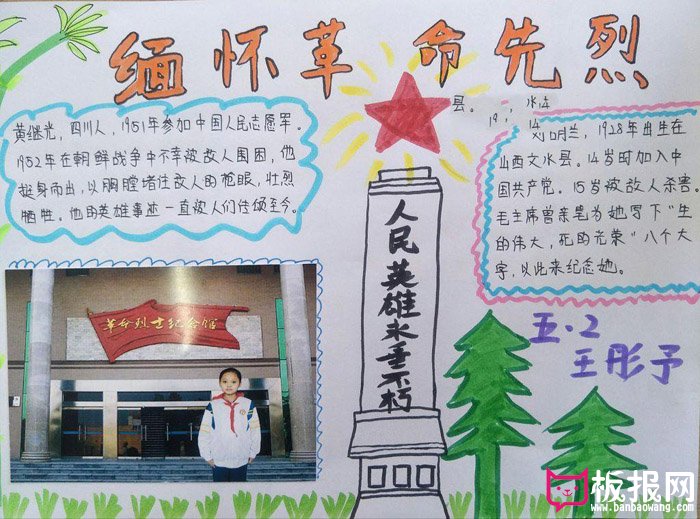 缅怀革命先烈
黄继光，四川人，1951年参加中国人民志愿军。
1952年在朝鲜战争中不幸被敌人围困，他
挺身而出，以胸膛堵住敌人的枪眼，壮烈
牺牲。他的英雄事迹一直被人们传颂至今。
革命烈士纪念馆
人民英雄永垂不朽
县。
刘胡兰，1928年出生在
山西文水县。14岁时加入中
国共产党。15岁被敌人杀害。
毛主席曾亲笔为她写下“生
的伟大，死的光荣”八个大
字，以此来纪念她。
五.2
王彤予
板报网
www.banbaowang.com